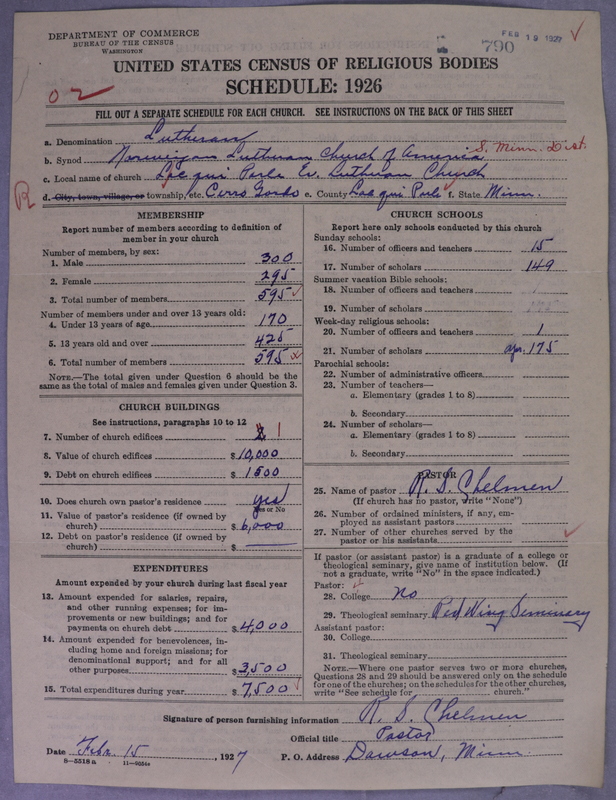 DEPARTMENT OF COMMERCE
BUREAU OF THE CENSUS
WASHINGTON
790
FEB 19 1927
UNITED STATES CENSUS OF RELIGIOUS BODIES
SCHEDULE: 1926
FILL OUT A SEPARATE SCHEDULE FOR EACH CHURCH. SEE INSTRUCTIONS ON THE BACK OF THIS SHEET
a. Denomination Lutheran
b. Synod Norwegian Lutheran Church of America S. Minn. Dist.
c. Local name of church Lac qui Parle Ev. Lutheran Church
R
d. City, town, village, or township, etc. Cerro Gordo e. County Lac qui Parle f. State Minn.
MEMBERSHIP
Report number of members according to definition of
member in your church
Number of members, by sex:
1. Male 300
2. Female 295
3. Total number of members 595
Number of members under and over 13 years old:
4. Under 13 years of age 170
5. 13 years old and over 425
6. Total number of members 595
NOTE.—The total given under Question 6 should be the
same as the total of males and females given under Question 3.
CHURCH BUILDINGS
See instructions, paragraphs 10 to 12
7. Number of church edifices 1
8. Value of church edifices $10,000
9. Debt on church edifices $1500
10. Does church own pastor's residence yes
Yes or No
11. Value of pastor's residence (if owned by
church) $6,000
12. Debt on pastor's residence (if owned by
church) $
EXPENDITURES
Amount expended by your church during last fiscal year
13. Amount expended for salaries, repairs,
and other running expenses; for im-
provements or new buildings; and for
payments on church debt $4,000
14. Amount expended for benevolences, in-
cluding home and foreign missions; for
denominational support; and for all
other purposes $3,500
15. Total expenditures during year $7,500
CHURCH SCHOOLS
Report here only schools conducted by this church
Sunday schools:
16. Number of officers and teachers 15
17. Number of scholars 149
Summer vacation Bible schools:
18. Number of officers and teachers
19. Number of scholars
Week-day religious schools:
20. Number of officers and teachers 1
21. Number of scholars apr. 175
Parochial schools:
22. Number of administrative officers
23. Number of teachers—
a. Elementary (grades 1 to 8)
b. Secondary
24. Number of scholars—
a. Elementary (grades 1 to 8)
b. Secondary
PASTOR
25. Name of pastor R. S. Chelmen
(If church has no pastor, write "None")
26. Number of ordained ministers, if any, em-
ployed as assistant pastors
27. Number of other churches served by the
pastor or his assistants
If pastor (or assistant pastor) is a graduate of a college or
theological seminary, give name of institution below. (If
not a graduate, write "No" in the space indicated.)
Pastor:
28. College No
29. Theological seminary Red Wing Seminary
Assistant pastor:
30. College
31. Theological seminary
NOTE.—Where one pastor serves two or more churches,
Questions 28 and 29 should be answered only on the schedule
for one of the churches; on the schedules for the other churches,
write "See schedule for church."
Signature of person furnishing information R. S. Chelmen
Official title Pastor
Date Feb. 15, 1927 P. O. Address Dawson, Minn
8—5518 a